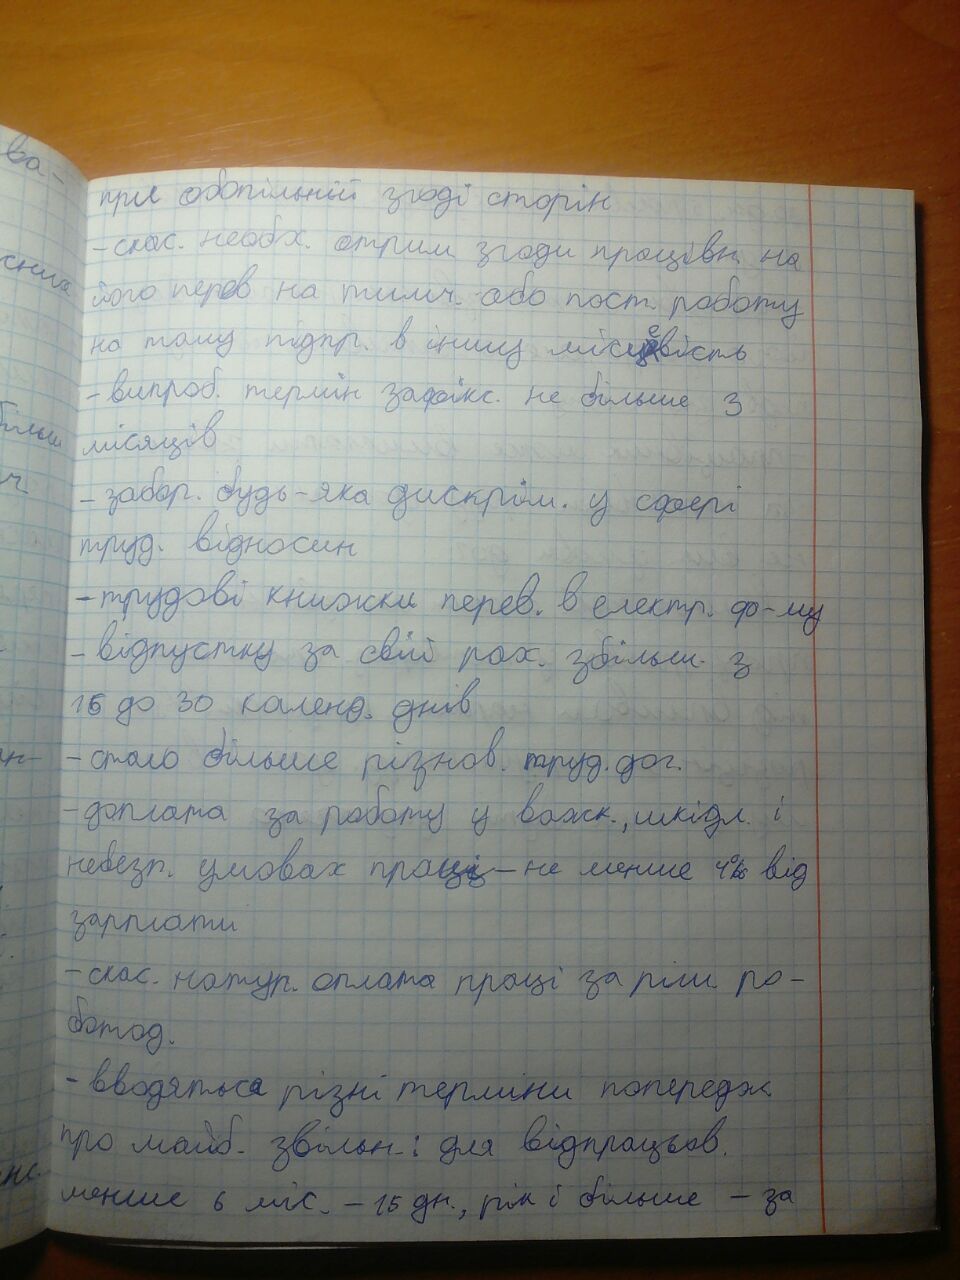 при обопільній згоді сторін
- скас. необх. отрим. згоди працівн. на
його перев на тимч. або пост. роботу
на тому підпр. в іншу місцевість
- випроб. термін зафікс. не більше 3
місяців
- забор. будь-яка дискрим. у сфері
труд. відносин
- трудові книжки перев. в електр. фо-му
- відпустку за свій рах. збільш. з
15 до 30 календ. днів
- стало більше різнов. труд. дог.
- доплата за роботу у важк., шкідл. і
небезп. умовах праці - не менше 4% від
зарплати
- скас. натур. оплата праці за ріш. ро-
ботод.
- вводяться різні терміни попередж
про майб. звільн.: для відпрацьов.
менше 6 міс. - 15 дн., рік і більше - за
ва-
більш
ч